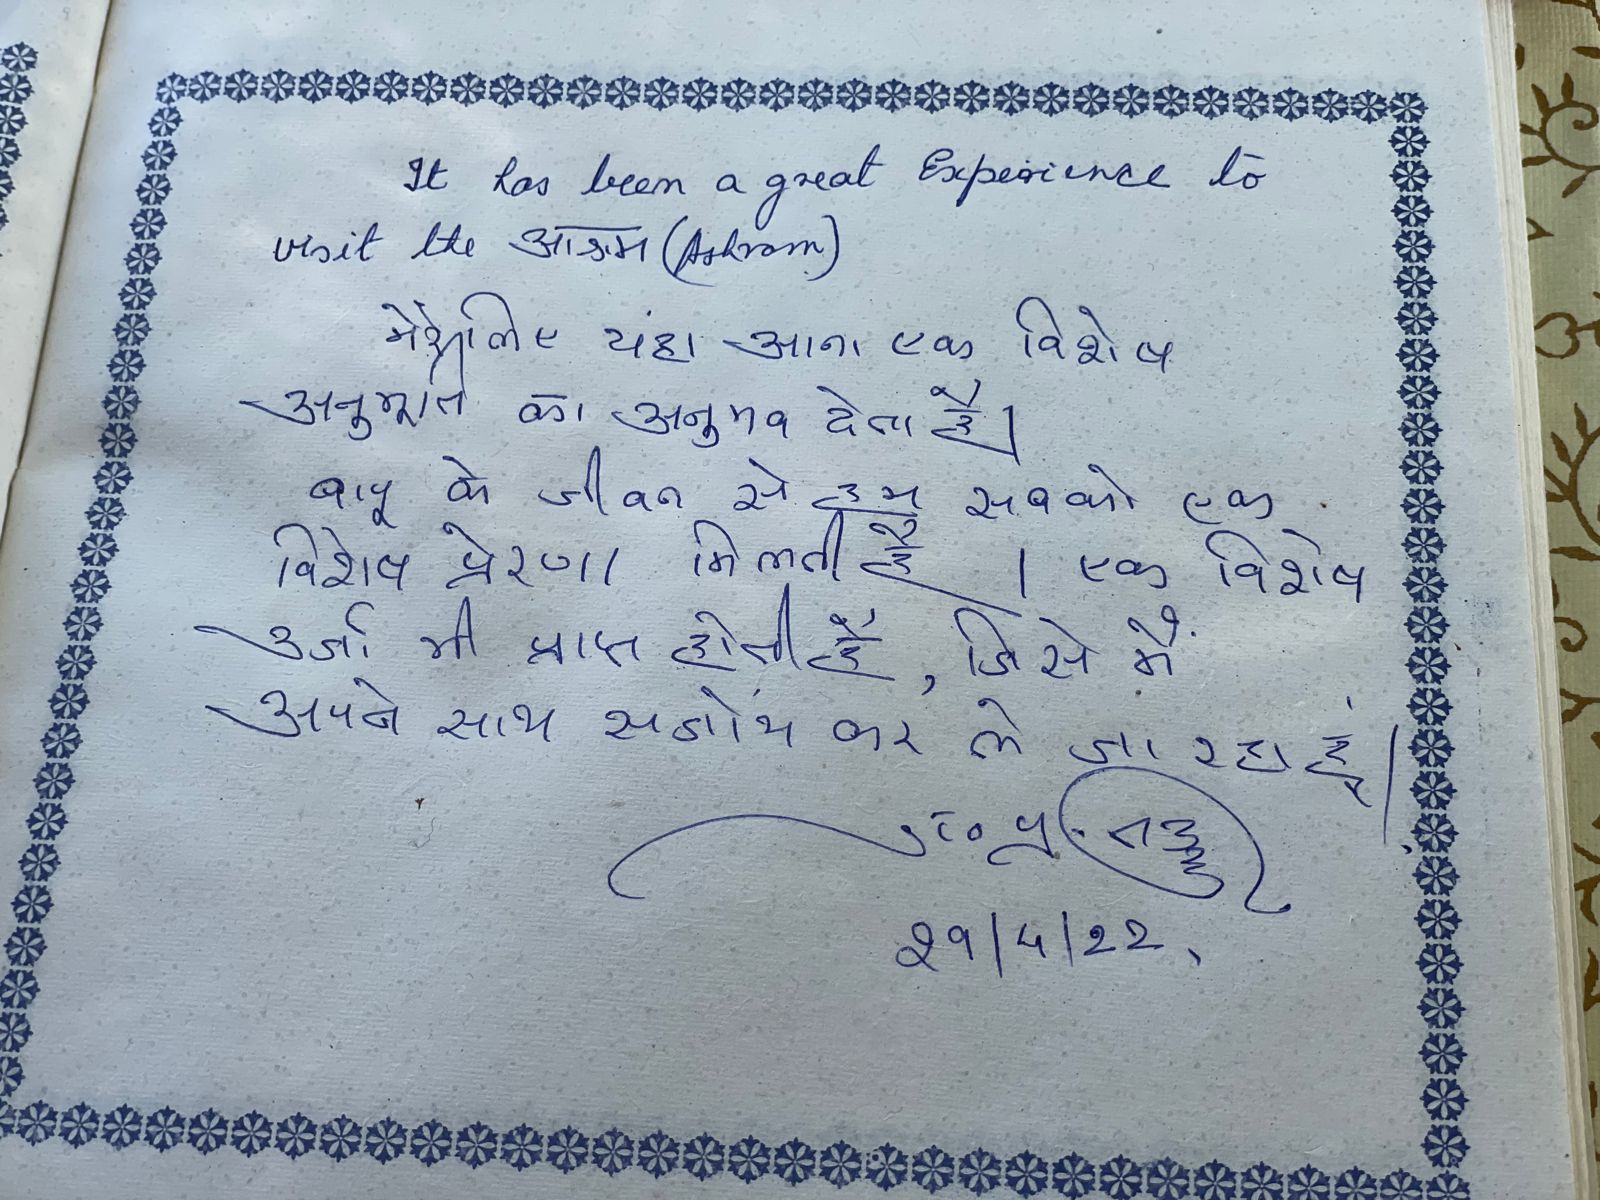 It has been a great Experience to
visit the आश्रम (Ashram)
मेरे लिए यंहा आना एक विशेष
अनुभूति का अनुभव देता है।
बापू के जीवन से हम सबको एक
विशेष प्रेरणा मिलती है । एक विशेष
उर्जा भी प्राप्त होती है, जिसे मैं
अपने साथ संजोय कर ले जा रहा हूं।
ज०प्र.
२१/4/22